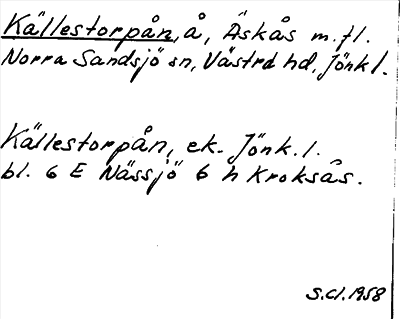 Källestorpån, å, Äskås m.fl.
Norra Sandsjö sn, Västra hd, Jönk l.
Källestorpån, ek. Jönk. l.
bl. 6 E Nässjö 6 h Kroksås.
S.Cl. 1958